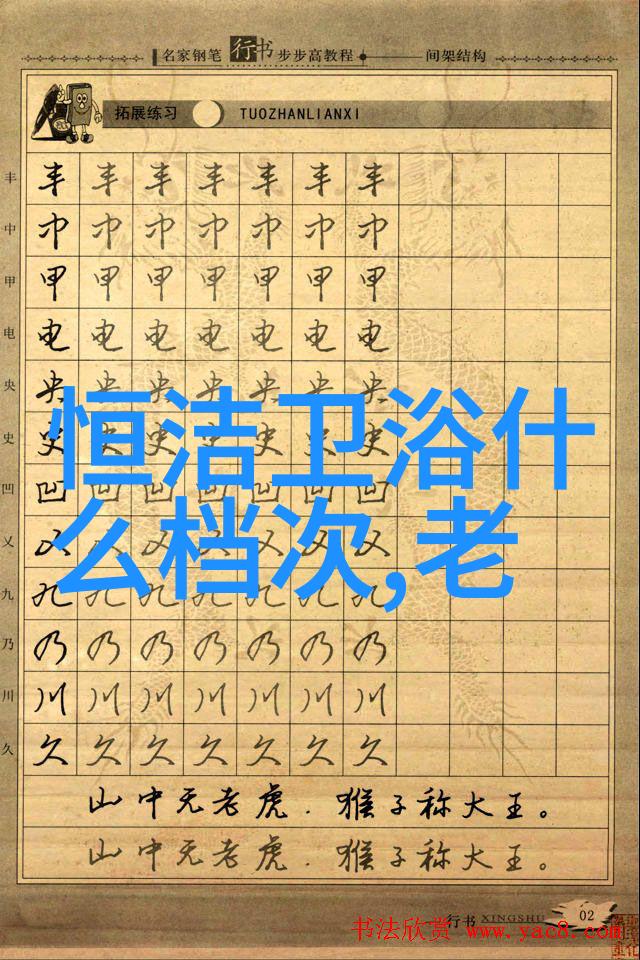 名家钢笔行书步步高教程 间架结构
拓展练习 TUOZHANLIANXI
丰 丰 丰 丰 丰 丰 丰 丰
中 中 中 中 中 中 中 中
甲 甲 甲 甲 甲 甲 甲 甲
电 电 电 电 电 电 电 电
央 央 央 央 央 央 央 央
史 史 史 史 史 史 史 史
恒洁卫浴什
凹 凹 凹 凹 凹 凹 凹 凹
乂 乂 乂 乂 乂 乂 乂 乂
么档次,老
九 九 九 九 九 九 九 九
乃 乃 乃 乃 乃 乃 乃 乃
川 川 川 川 川 川 川 川
久 久 久 久 久 久 久 久
山中无老虎.猴子称大王。
山中无老虎.猴子称大王。
行书 XINGSHU 02
书法欣赏 www.yac8.com